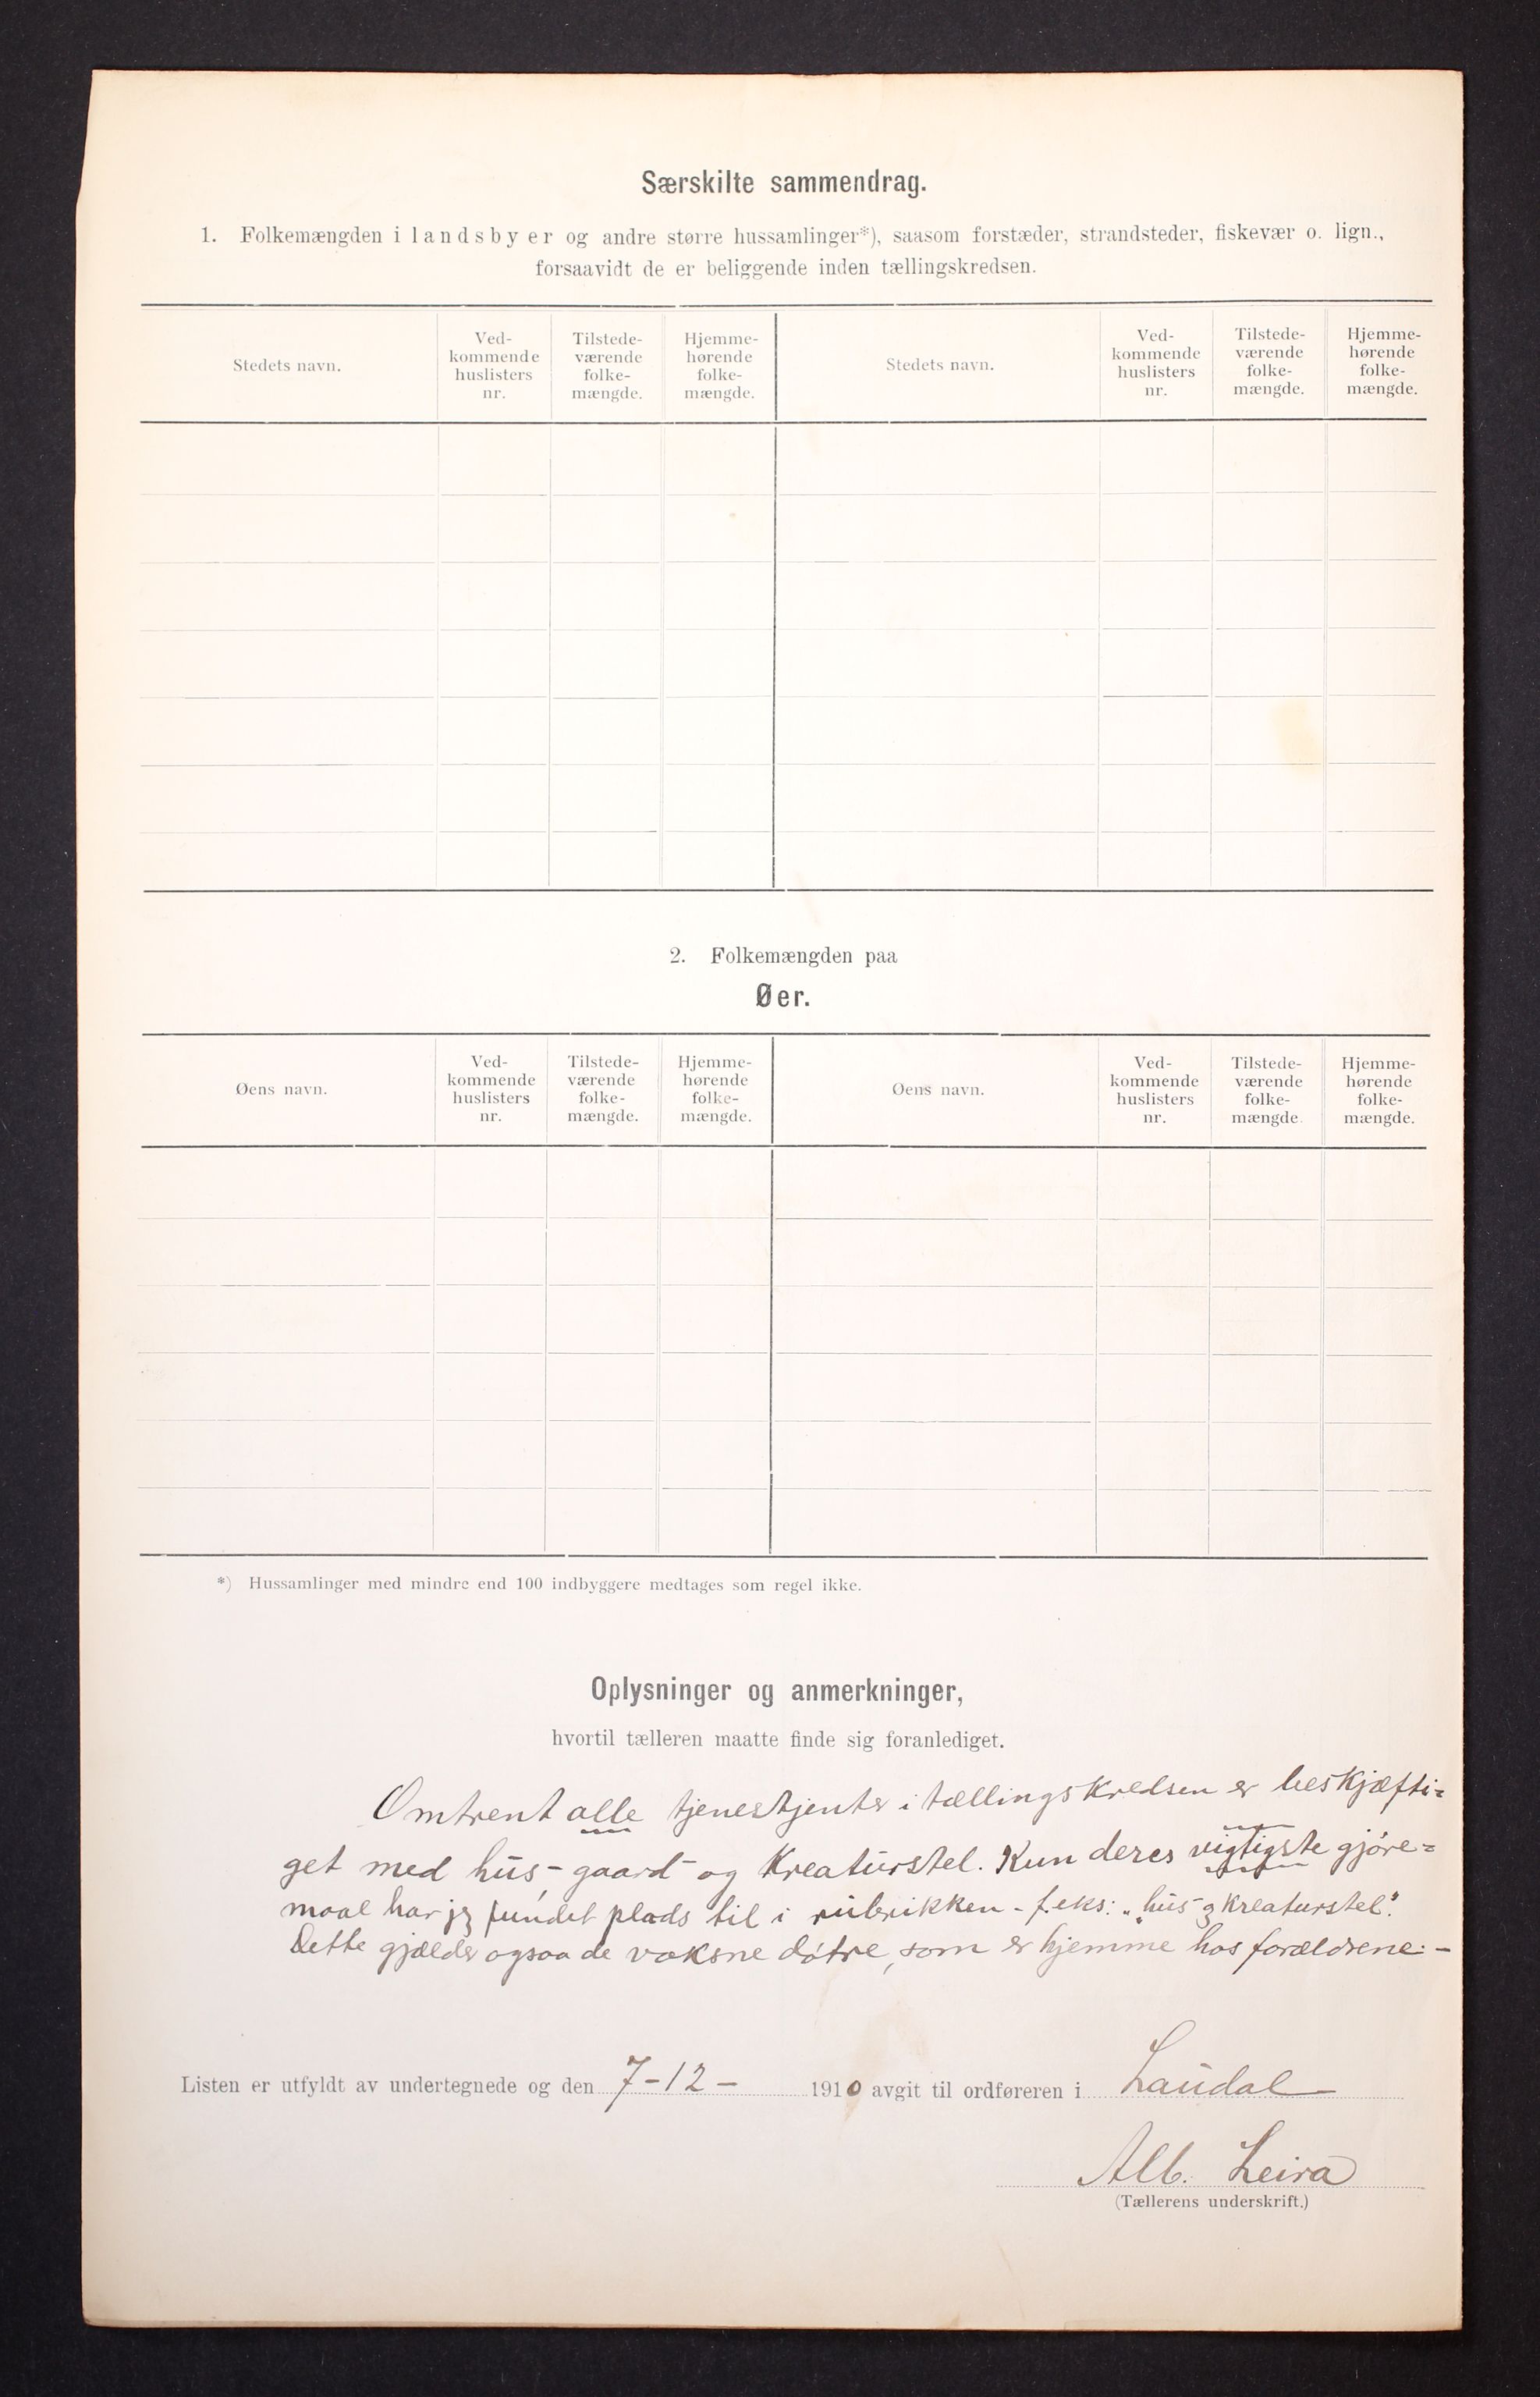 Særskilte sammendrag.
1. Folkemængden i landsbyer og andre større hussamlinger*), saasom forstæder, strandsteder, fiskevær o. lign.,
forsaavidt de er beliggende inden tællingskredsen.
Stedets navn.
Ved-
kommende
huslisters
nr.
Tilstede-
værende
folke-
mængde.
Hjemme-
hørende
folke-
mængde.
Stedets navn.
Ved-
kommende
huslisters
nr.
Tilstede-
værende
folke-
mængde.
Hjemme-
hørende
folke-
mængde.
2. Folkemængden paa
Øer.
Øens navn.
Ved-
kommende
huslisters
nr.
Tilstede-
værende
folke-
mængde.
Hjemme-
hørende
folke-
mængde.
Øens navn.
Ved-
kommende
huslisters
nr.
Tilstede-
værende
folke-
mængde.
Hjemme-
hørende
folke-
mængde.
*) Hussamlinger med mindre end 100 indbyggere medtages som regel ikke.
Oplysninger og anmerkninger,
hvortil tælleren maatte finde sig foranlediget.
Omtrent alle tjenestjenter i tællingskredsen er beskjæfti=
get med hus,- gaard- og Kreaturstel. Kun deres vigtigste gjøre=
maal har jeg fundet plads til i rubrikken - f.eks: „hus- og kreaturstel".
Dette gjælder ogsaa de voksne døtre, som er hjemme hos forældrene. -
Listen er utfyldt av undertegnede og den 7-12- 1910 avgit til ordføreren i Laudal
Alb. Leira
(Tællerens underskrift.)